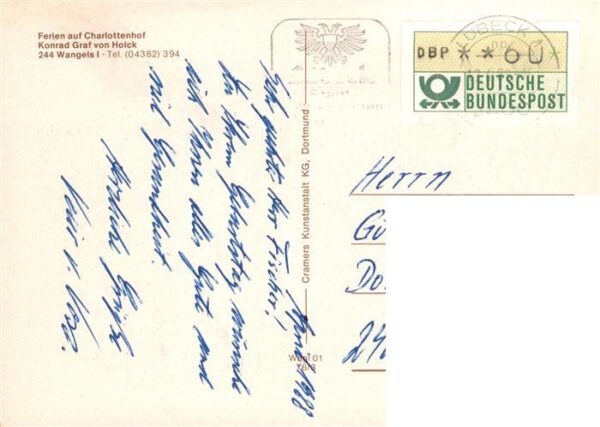 Ferien auf Charlottenhof
Konrad Graf von Holck
244 Wangels I - Tel. (04382) 394
LÜBECK
DBP * * 60 *
DEUTSCHE
BUNDESPOST
Cramers Kunstanstalt KG, Dortmund
Wgl 01
76/9
April 1988
Sehr geehrter Herr Fischer!
Zu Ihrem Geburtstag wünsche
ich Ihnen alles Gute und
viel Gesundheit.
Herzliche Grüße
Herrn
Do